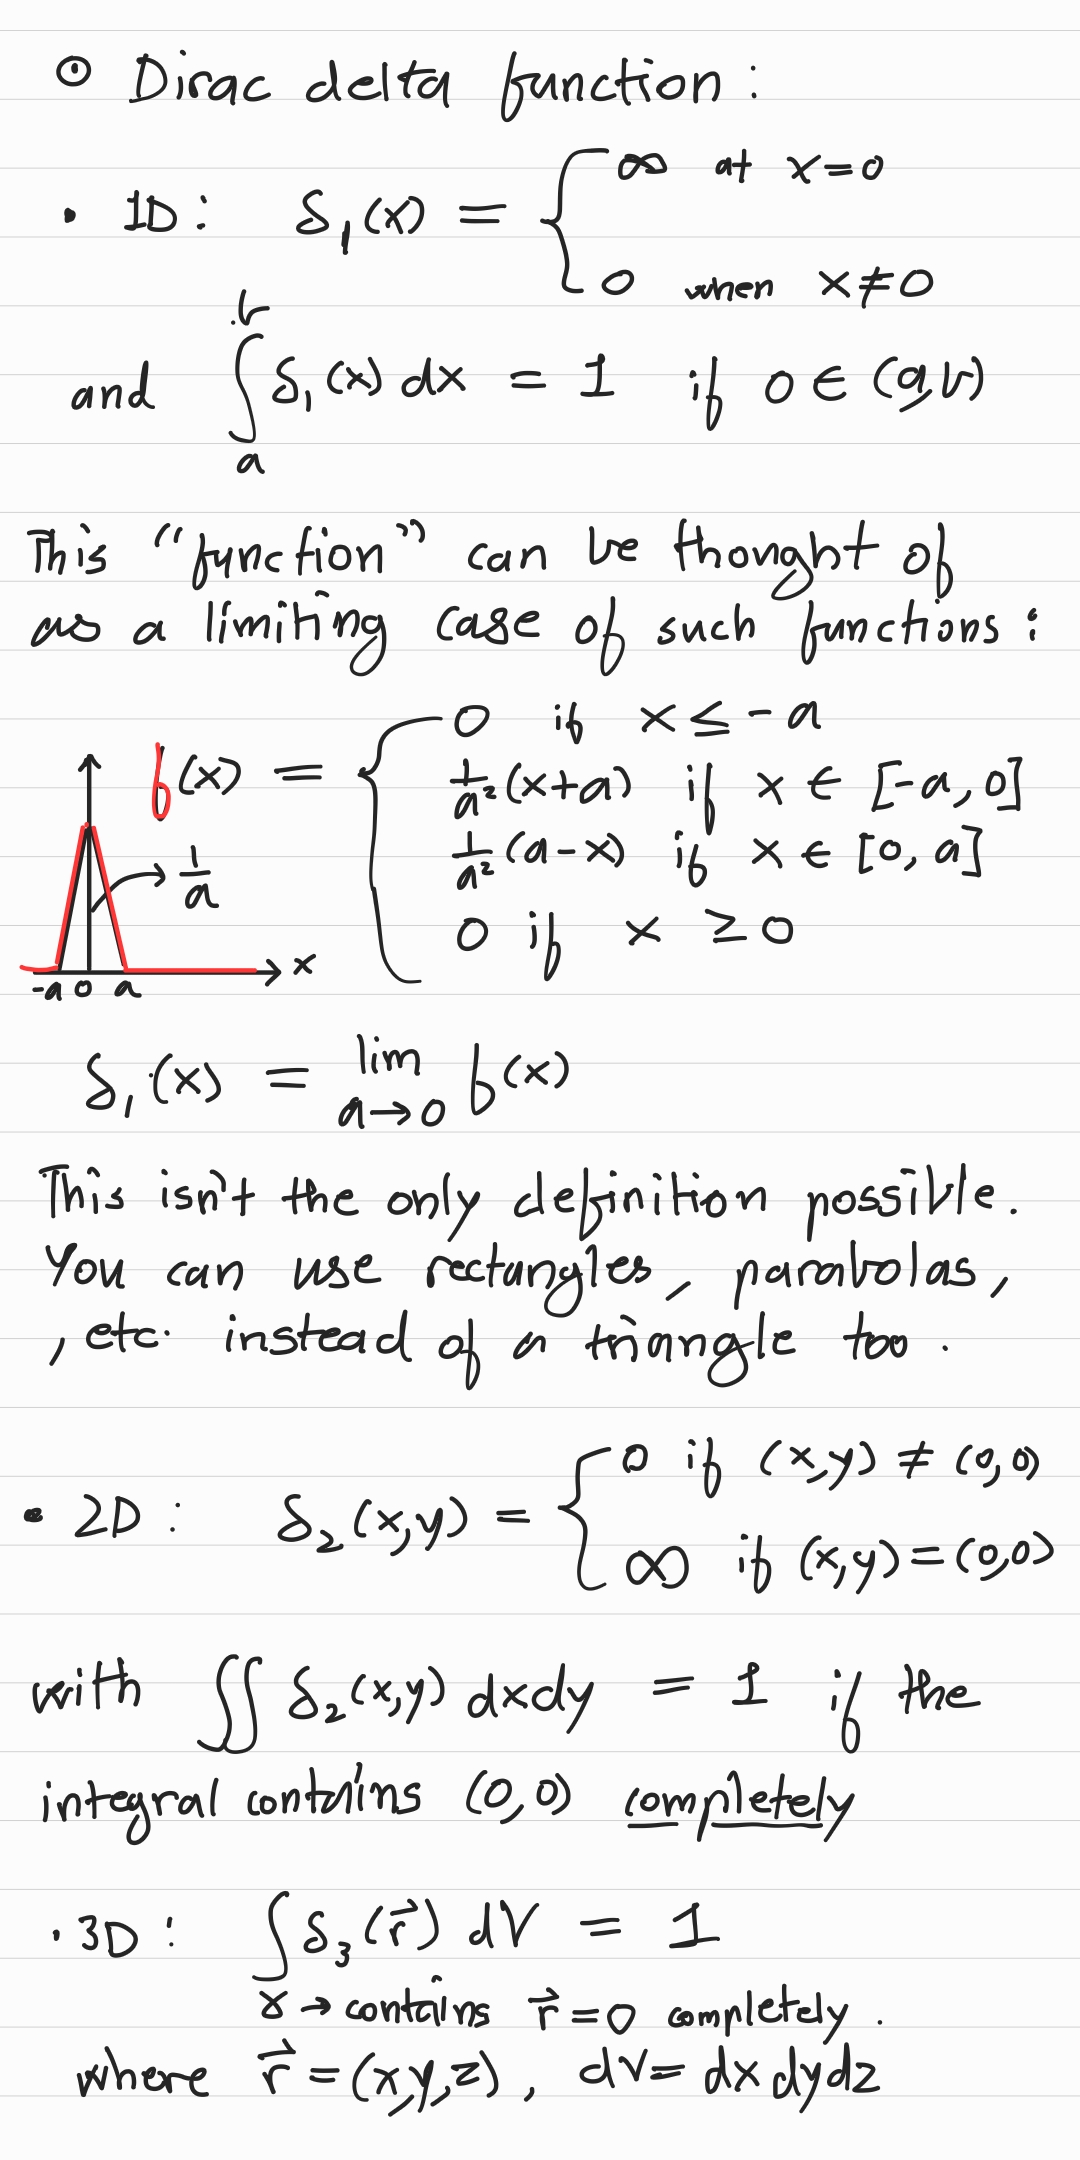 ⊙ Dirac delta function :
• 1D : δ₁(x) = { ∞ at x=0
0 when x≠0
and ∫ₐᵇ δ₁(x) dx = 1 if 0 ∈ (a,b)
This "function" can be thought of
as a limiting case of such functions :
f(x) = { 0 if x ≤ -a
1/a² (x+a) if x ∈ [-a, 0]
1/a² (a-x) if x ∈ [0, a]
0 if x ≥ 0
1/a
x
-a 0 a
δ₁(x) = lim a→0 f(x)
This isn't the only definition possible.
You can use rectangles, parabolas,
, etc. instead of a triangle too.
• 2D : δ₂(x,y) = { 0 if (x,y) ≠ (0,0)
∞ if (x,y) = (0,0)
with ∬ δ₂(x,y) dxdy = 1 if the
integral contains (0,0) completely
• 3D : ∫ δ₃(r⃗) dV = 1
γ → contains r⃗ = 0 completely.
where r⃗ = (x,y,z) , dV = dxdydz